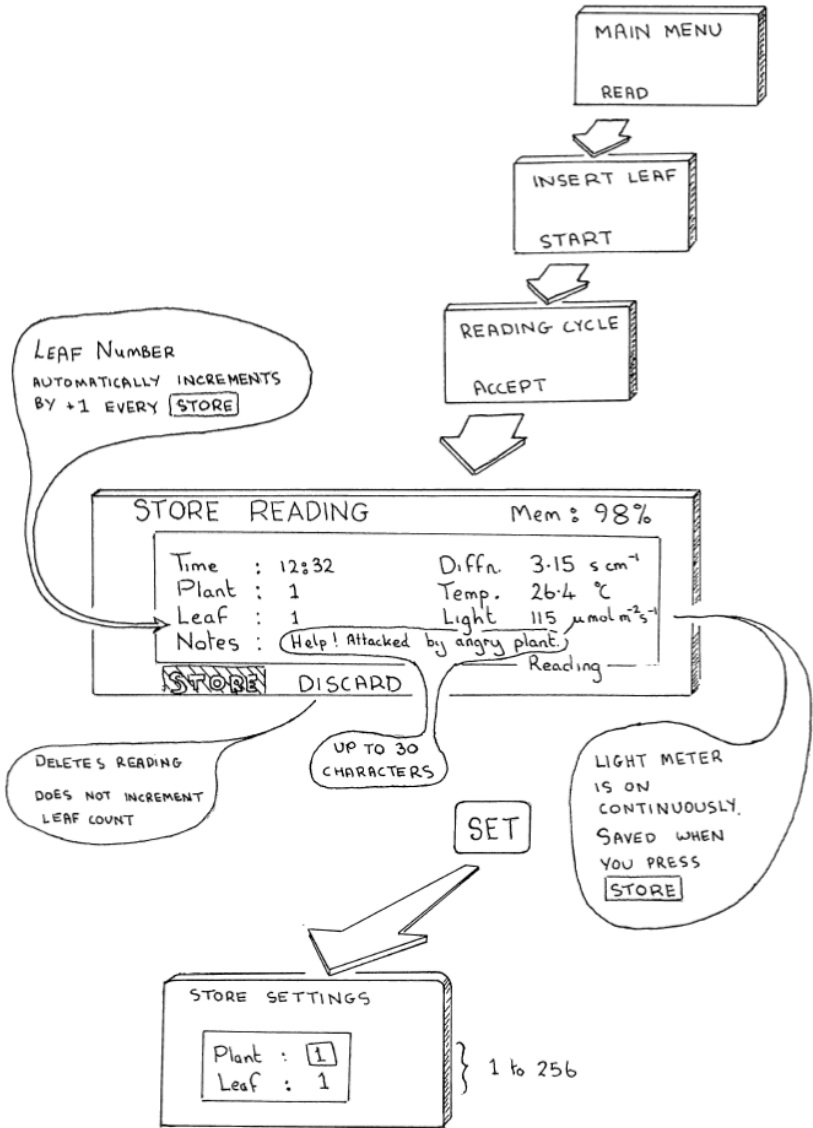 MAIN MENU
READ
INSERT LEAF
START
READING CYCLE
ACCEPT
LEAF NUMBER
AUTOMATICALLY INCREMENTS
BY +1 EVERY STORE
STORE READING Mem : 98%
Time : 12:32 Diffn. 3·15 s cm⁻¹
Plant : 1 Temp. 26·4 °C
Leaf : 1 Light 115 μmol m⁻²s⁻¹
Notes : Help! Attacked by angry plant.
Reading
STORE DISCARD
DELETES READING
DOES NOT INCREMENT
LEAF COUNT
UP TO 30
CHARACTERS
LIGHT METER
IS ON
CONTINUOUSLY.
SAVED WHEN
YOU PRESS
STORE
SET
STORE SETTINGS
Plant : 1
Leaf : 1
1 to 256